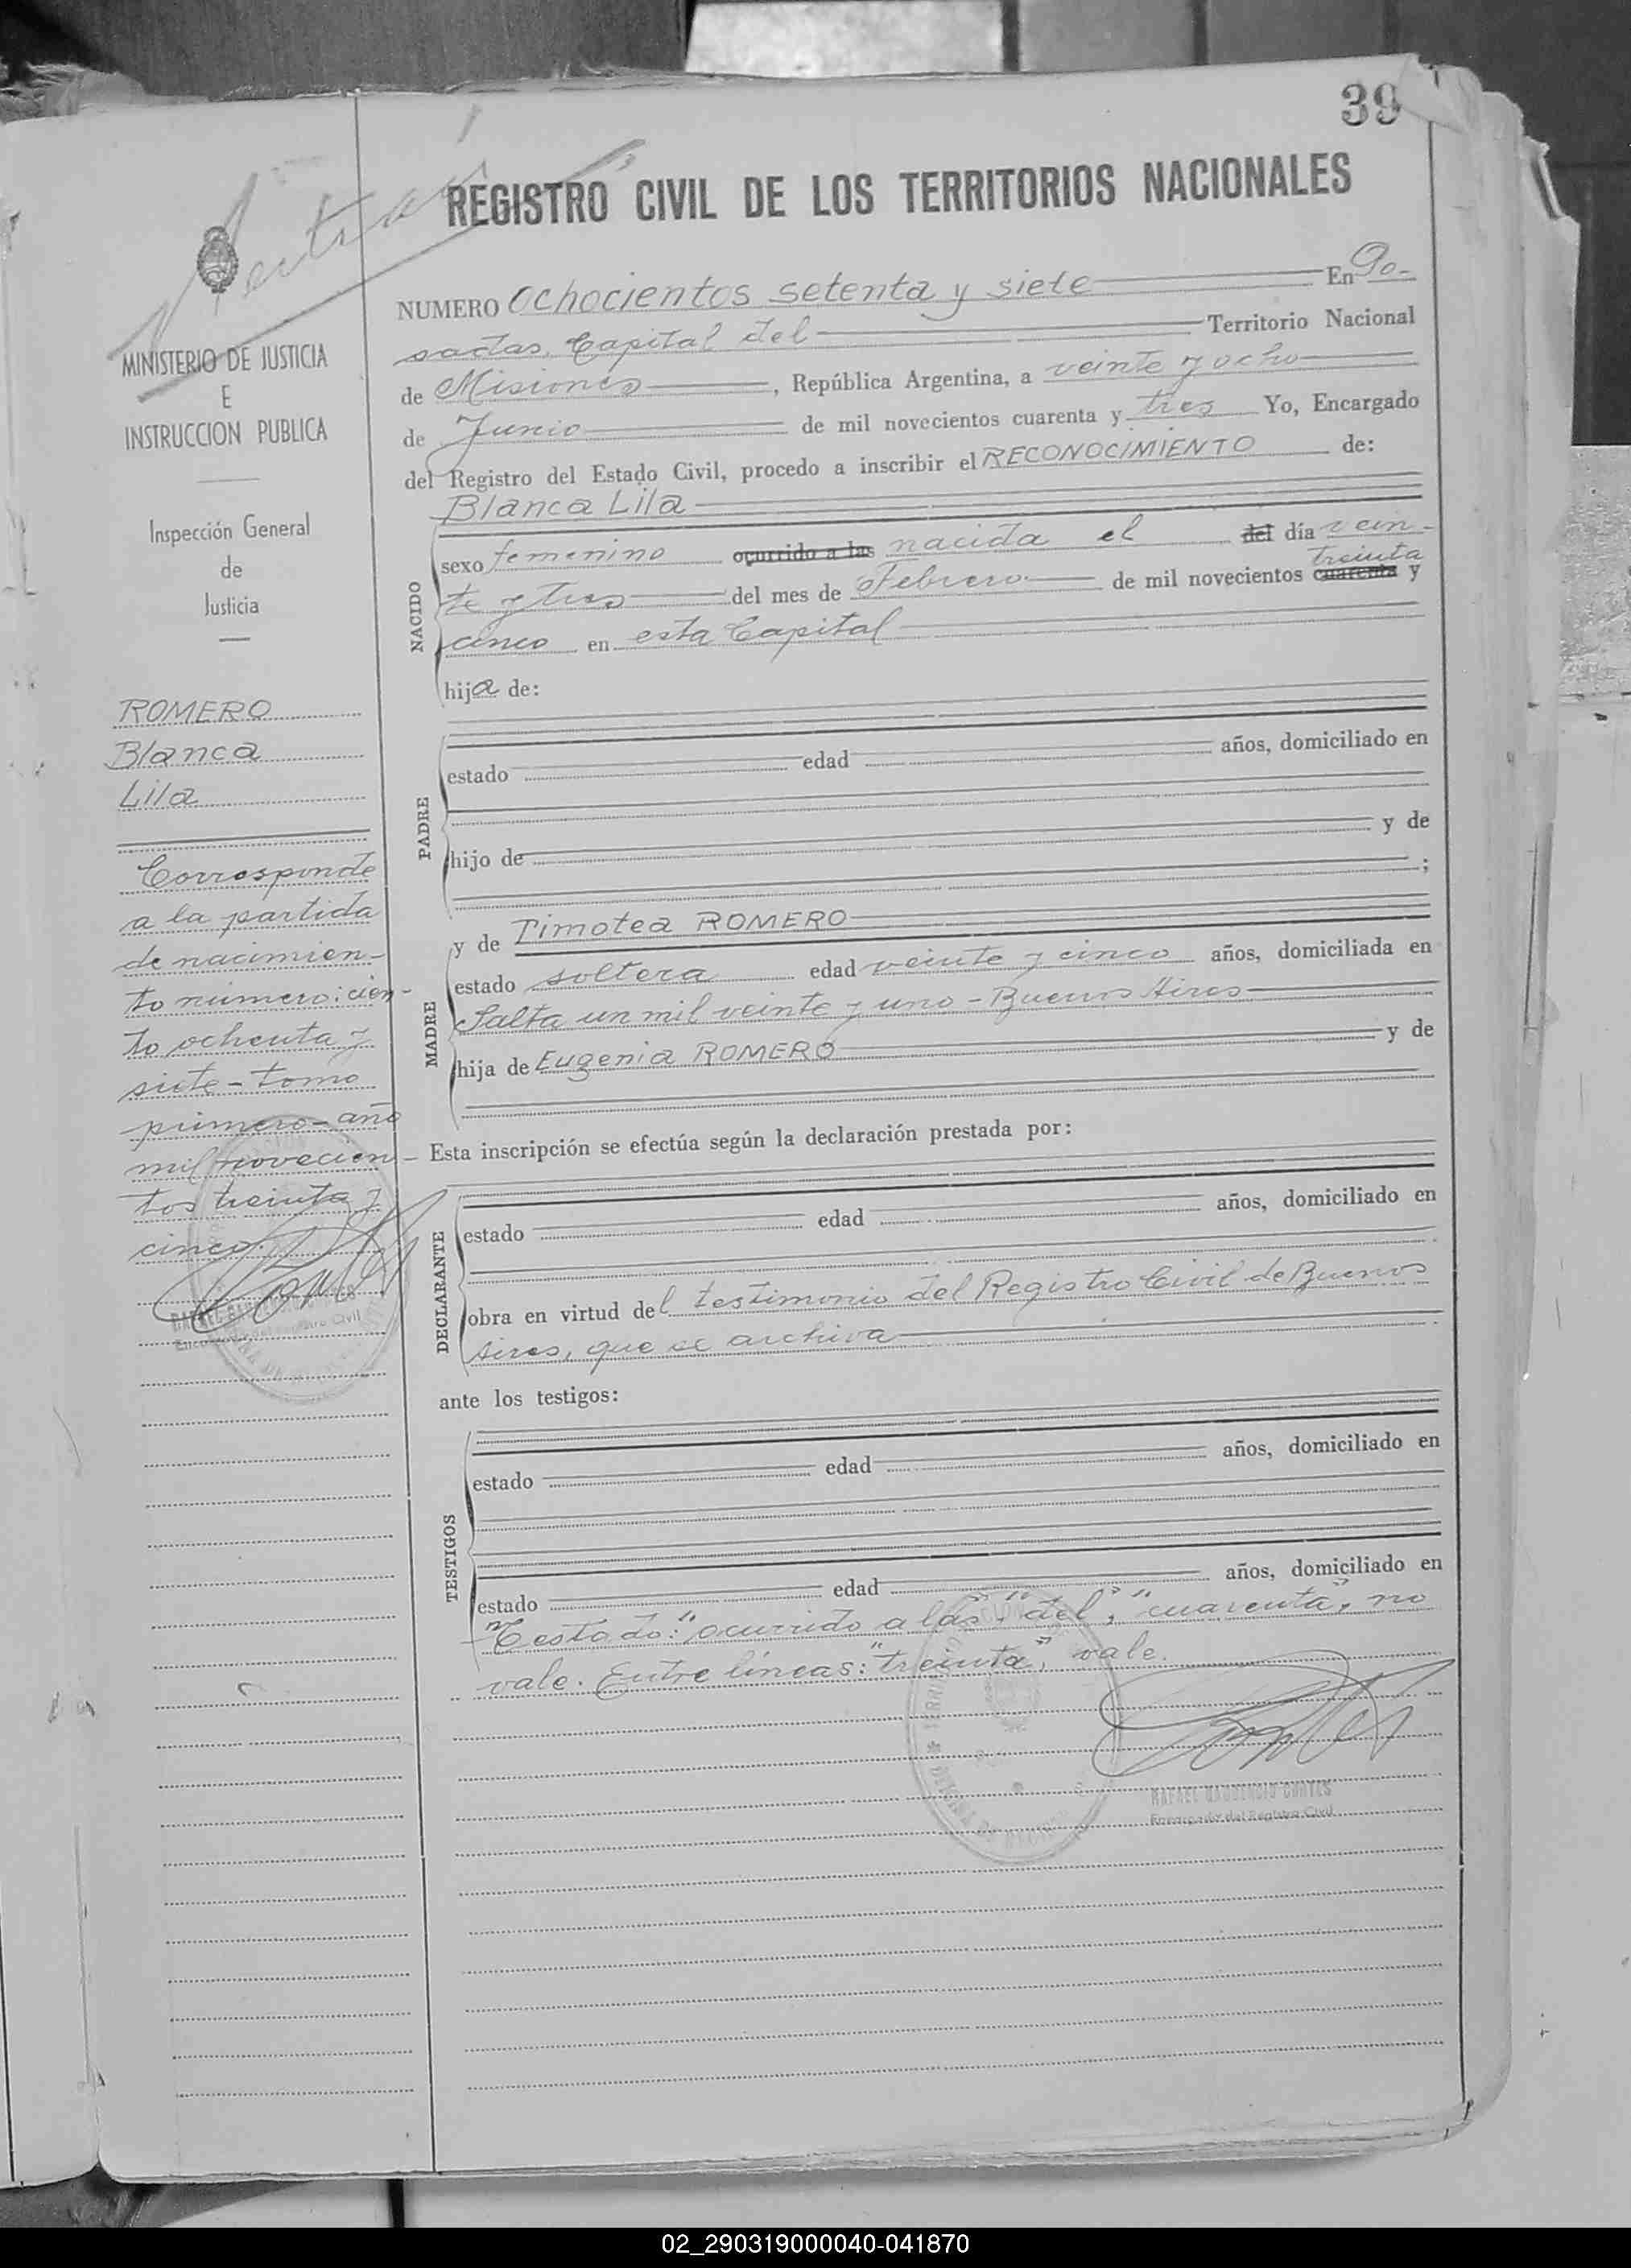 39
REGISTRO CIVIL DE LOS TERRITORIOS NACIONALES
MINISTERIO DE JUSTICIA
E
INSTRUCCION PUBLICA
Inspección General
de
Justicia
ROMERO
Blanca
Lila
Corresponde
a la partida
de nacimien-
to número: cien-
to ochenta y
siete - tomo
primero - año
mil novecien-
tos treinta y
cinco.
Encargado del Registro Civil
NUMERO Ochocientos setenta y siete En Po-
sadas, Capital del Territorio Nacional
de Misiones, República Argentina, a veinte y ocho
de Junio de mil novecientos cuarenta y tres Yo, Encargado
del Registro del Estado Civil, procedo a inscribir el RECONOCIMIENTO de:
Blanca Lila
NACIDO
sexo femenino ocurrido a las nacida el del día vein-
treinta
te y tres del mes de Febrero de mil novecientos cuarenta y
cinco en esta Capital
hija de:
PADRE
estado edad años, domiciliado en
hijo de y de
;
MADRE
y de Timotea ROMERO
estado soltera edad veinte y cinco años, domiciliada en
Salta un mil veinte y uno - Buenos Aires
hija de Eugenia ROMERO y de
Esta inscripción se efectúa según la declaración prestada por:
DECLARANTE
estado edad años, domiciliado en
obra en virtud del testimonio del Registro Civil de Buenos
Aires, que se archiva
ante los testigos:
TESTIGOS
estado edad años, domiciliado en
estado edad años, domiciliado en
Testado: "ocurrido a las", "del", "cuarenta", no
vale. Entre líneas: "treinta", vale.
RAFAEL GAUDENCIO CORTES
Encargado del Registro Civil
02_290319000040-041870